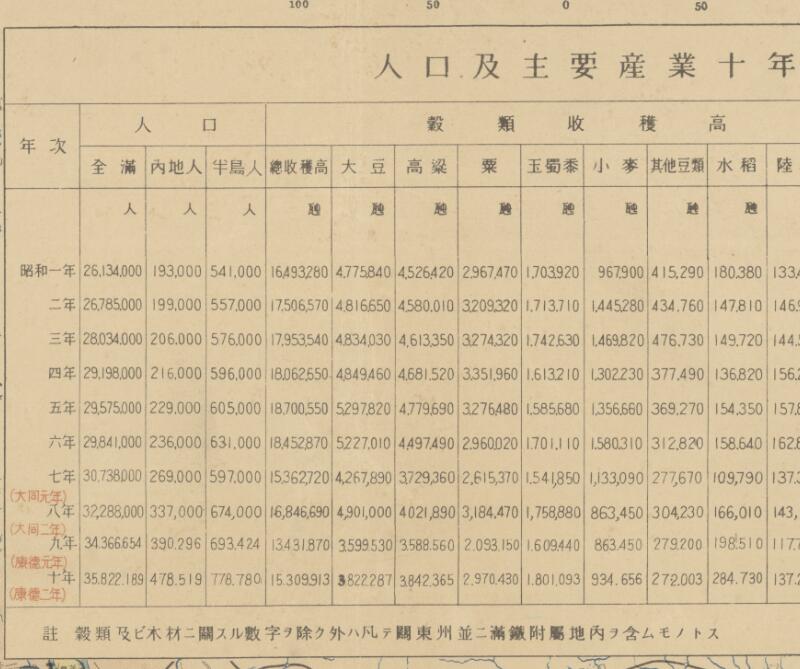 100 50 0 50
人口及主要産業十年
年次 人口 穀類收穫高
全滿 內地人 半島人 總收穫高 大豆 高粱 粟 玉蜀黍 小麥 其他豆類 水稻 陸
人 人 人 瓲 瓲 瓲 瓲 瓲 瓲 瓲 瓲
昭和一年 26,134,000 193,000 541,000 16,493,280 4,775,840 4,526,420 2,967,470 1,703,920 967,900 415,290 180,380 133,4
二年 26,785,000 199,000 557,000 17,506,570 4,816,650 4,580,010 3,209,320 1,713,710 1,445,280 434,760 147,810 146,9
三年 28,034,000 206,000 576,000 17,953,540 4,834,030 4,613,350 3,274,320 1,742,630 1,469,820 476,730 149,720 144,5
四年 29,198,000 216,000 596,000 18,062,650 4,849,460 4,681,520 3,351,960 1,613,210 1,302,230 377,490 136,820 156,2
五年 29,575,000 229,000 605,000 18,700,550 5,297,820 4,779,690 3,276,480 1,585,680 1,356,660 369,270 154,350 157,8
六年 29,841,000 236,000 631,000 18,452,870 5,227,010 4,497,490 2,960,020 1,701,110 1,580,310 312,820 158,640 162,8
七年 30,738,000 269,000 597,000 15,362,720 4,267,890 3,729,360 2,615,370 1,541,850 1,133,090 277,670 109,790 137,3
(大同元年)
八年 32,288,000 337,000 674,000 16,846,690 4,901,000 4,021,890 3,184,470 1,758,880 863,450 304,230 166,010 143,
(大同二年)
九年 34,366,654 390,296 693,424 13,431,870 3,599,530 3,588,560 2,093,150 1,609,440 863,450 279,200 198,510 117,
(康德元年)
十年 35,822,189 478,519 778,780 15,309,913 3,822,287 3,842,365 2,970,430 1,801,093 934,656 272,003 284,730 137,2
(康德二年)
註 穀類及ビ木材ニ關スル數字ヲ除ク外ハ凡テ關東州並ニ滿鐵附屬地內ヲ含ムモノトス